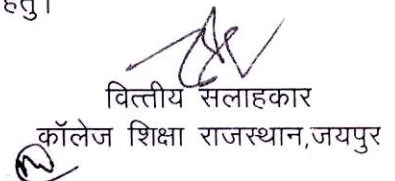 हेतु।
वित्तीय सलाहकार
कॉलेज शिक्षा राजस्थान,जयपुर